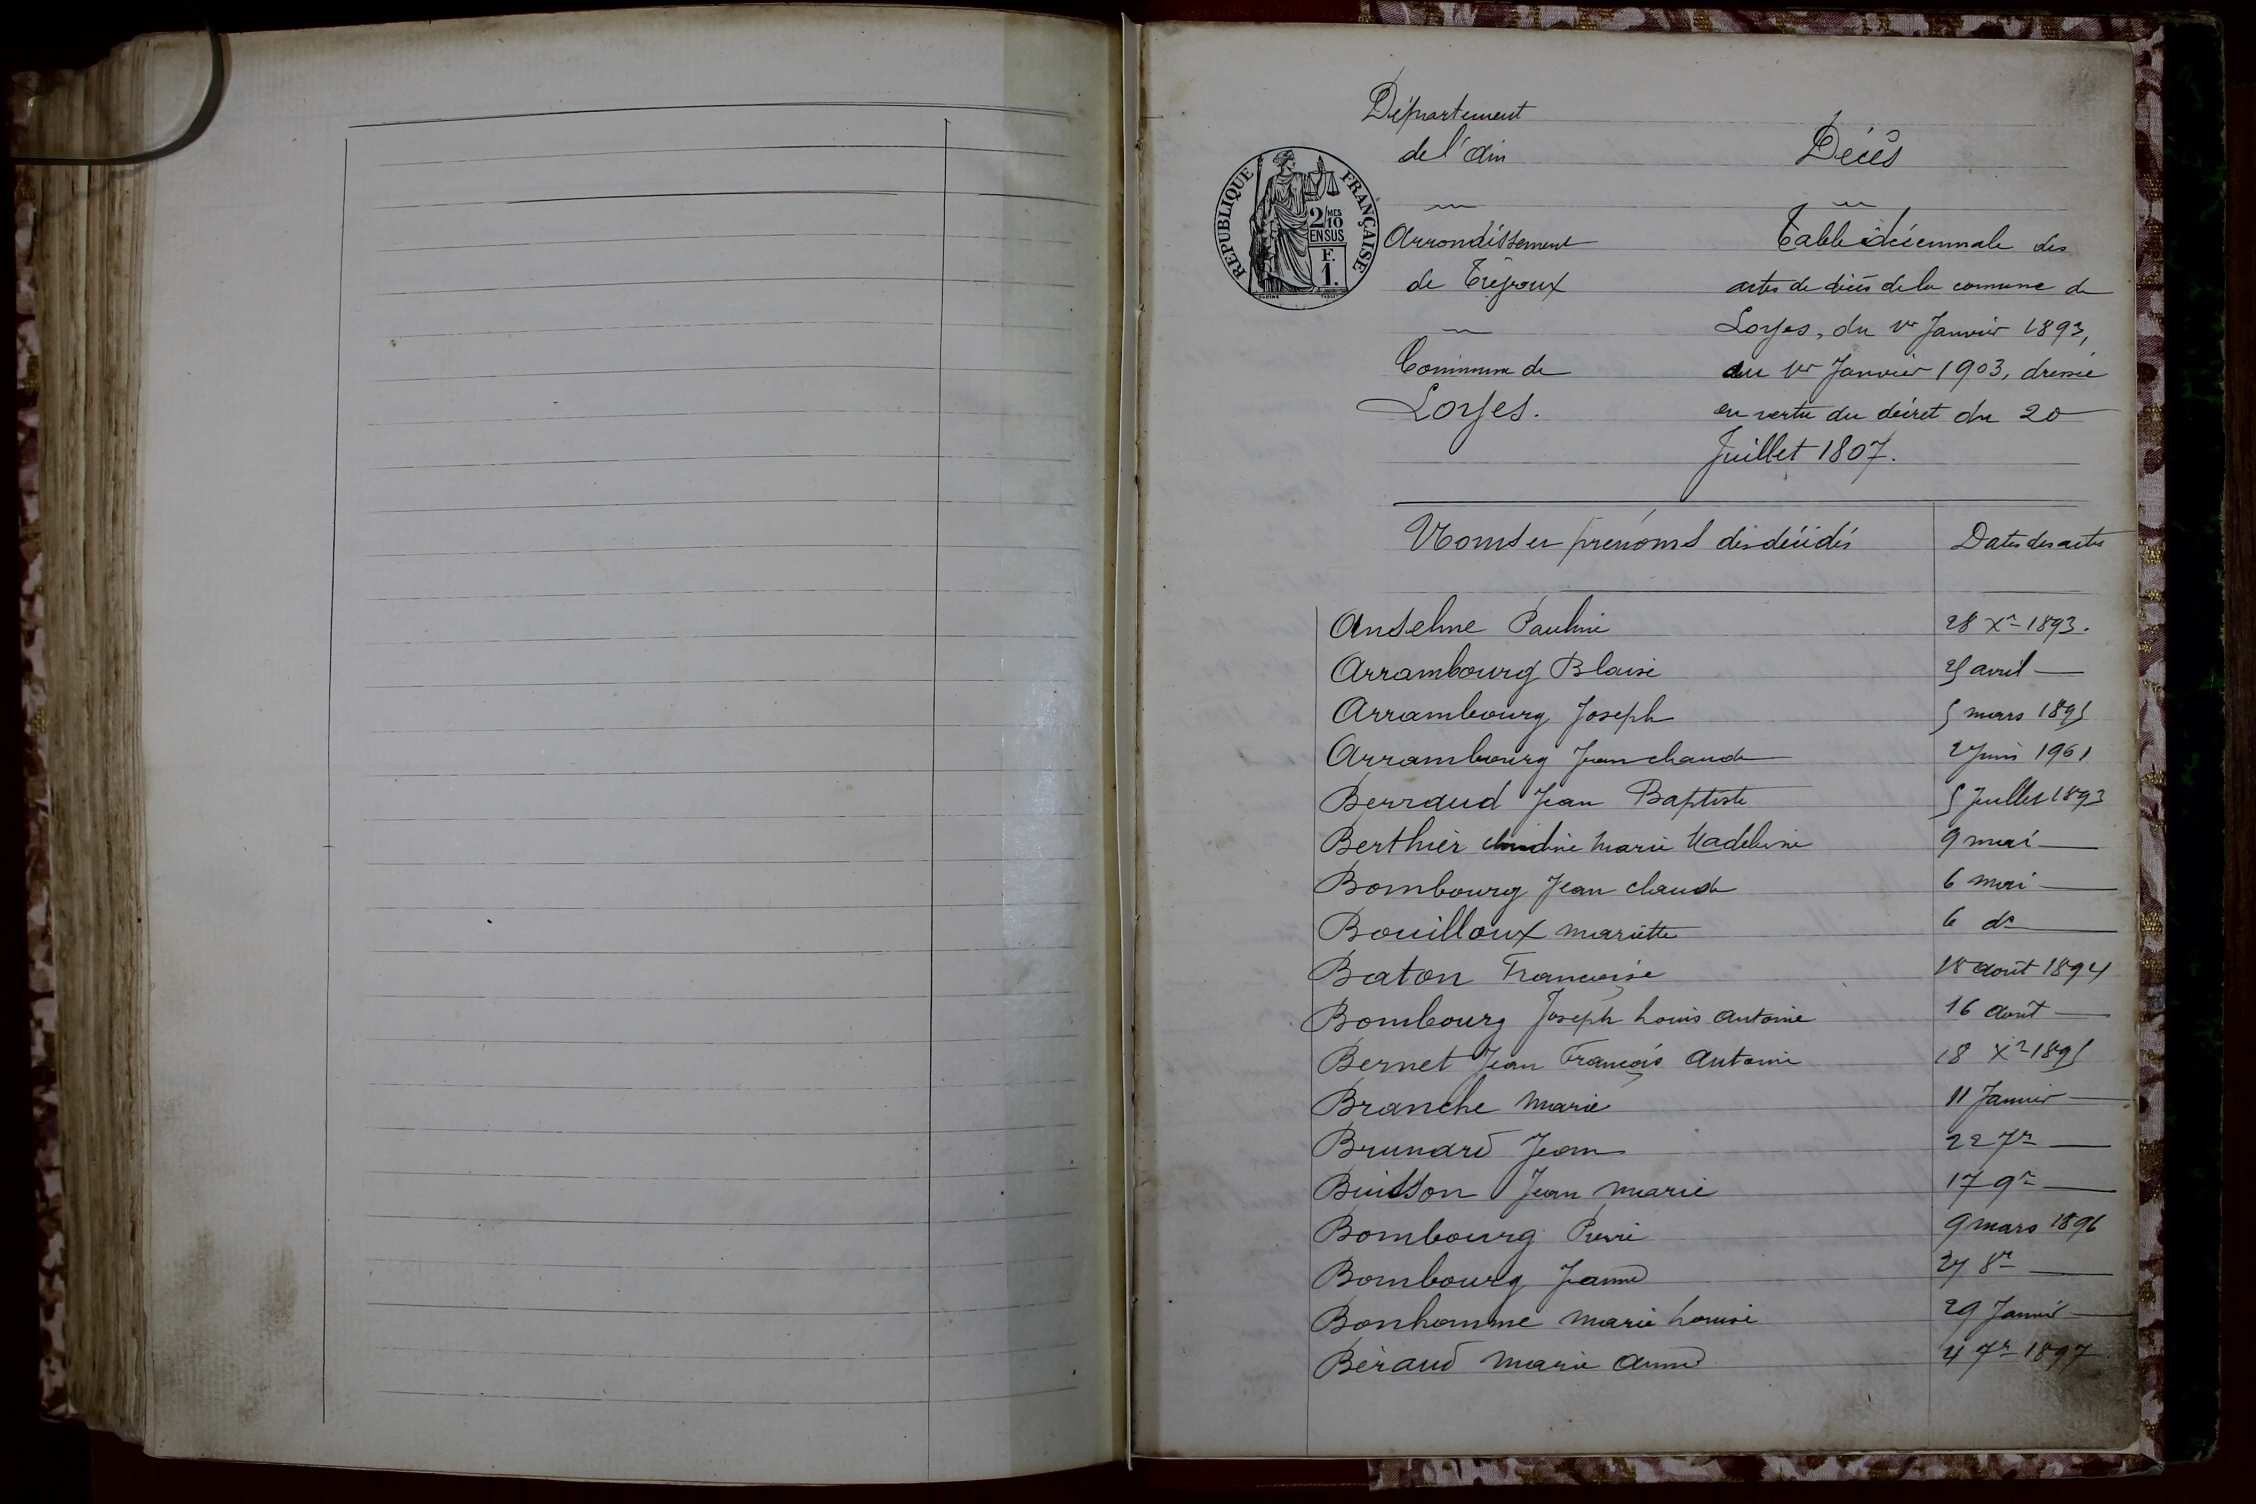 Département
de l'Ain
Arrondissement
de Trévoux
Commune de
Loyes.
RÉPUBLIQUE FRANÇAISE
2/10 MES
EN SUS
F.
1.
Décès
Table décennale des
actes de décès de la comune de
Loyes, du 1er Janvier 1893,
au 1er Janvier 1903, dressée
en vertu du décret du 20
Juillet 1807.
Noms et prénoms des décédés Dates des actes
Anselme Pauline 28 Xre 1893.
Arrambourg Blaise 25 avril —
Arrambourg Joseph 5 mars 1895
Arrambourg Jean claude 2 Juin 1901
Berraud Jean Baptiste 5 Juillet 1893
Berthier claudine Marie Madeleine 9 mai —
Bombourg Jean claude 6 mai —
Bouilloux mariette 6 do —
Baton Françoise 18 août 1894
Bombourg Joseph Louis Antoine 16 août —
Bernet Jean François Antoine 18 Xre 1895
Branche Marie 11 Janvier —
Brunard Jean 22 7re —
Buisson Jean Marie 17 9re —
Bombourg Pierre 9 mars 1896
Bombourg Jeanne 27 8re —
Bonhomme Marie Louise 29 Janvier —
Béraud Marie Anne 4 7re 1897